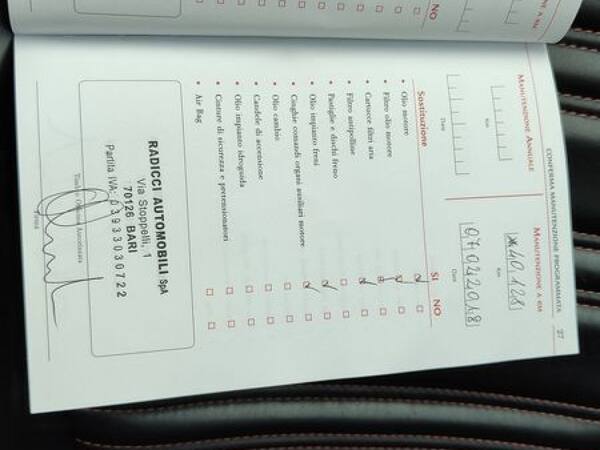 NO
CONFERMA MANUTENZIONE PROGRAMMATA 27
MANUTENZIONE ANNUALE
MANUTENZIONE A KM
Km
Km
Data
07022018
Data
Sostituzione
SI NO
• Olio motore
• Filtro olio motore
• Cartucce filtri aria
• Filtro antipolline
• Pastiglie e dischi freno
• Olio impianto freni
• Cinghie comandi organi ausiliari motore
• Olio cambio
• Candele di accensione
• Olio impianto idroguida
• Cinture di sicurezza e pretensionatori
• Air Bag
RADICCI AUTOMOBILI SpA
Via Stoppelli, 1
70126 BARI
Partita IVA: 03933030722
Timbro Officina Autorizzata
Firma